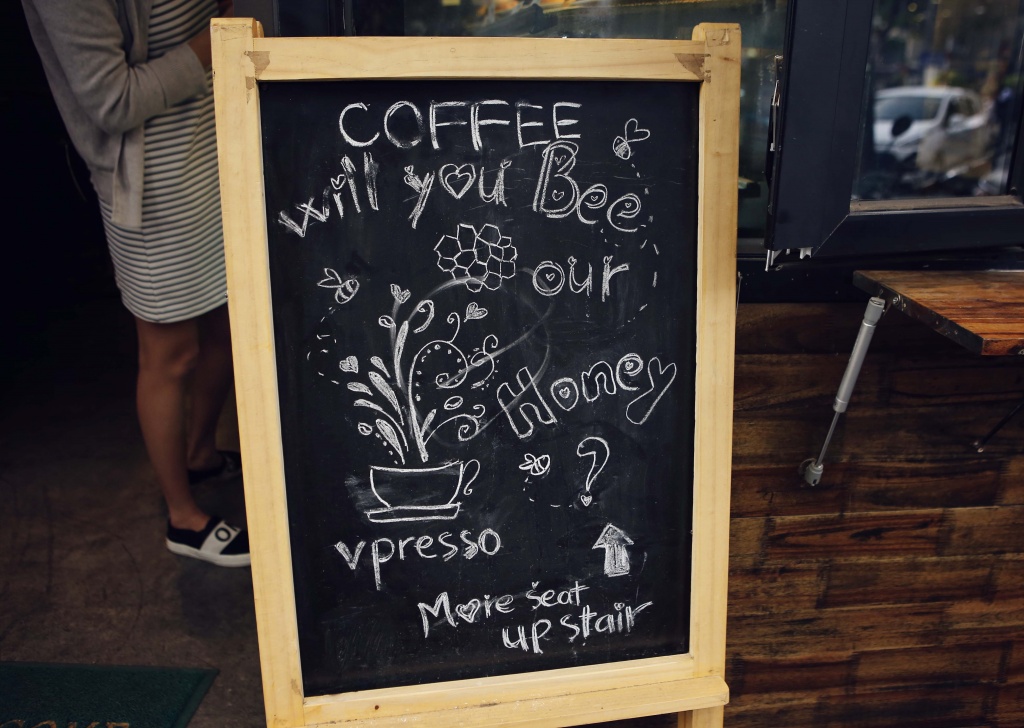 COFFEE
will you Bee
our
Honey
?
vpresso
More Seat
up stair